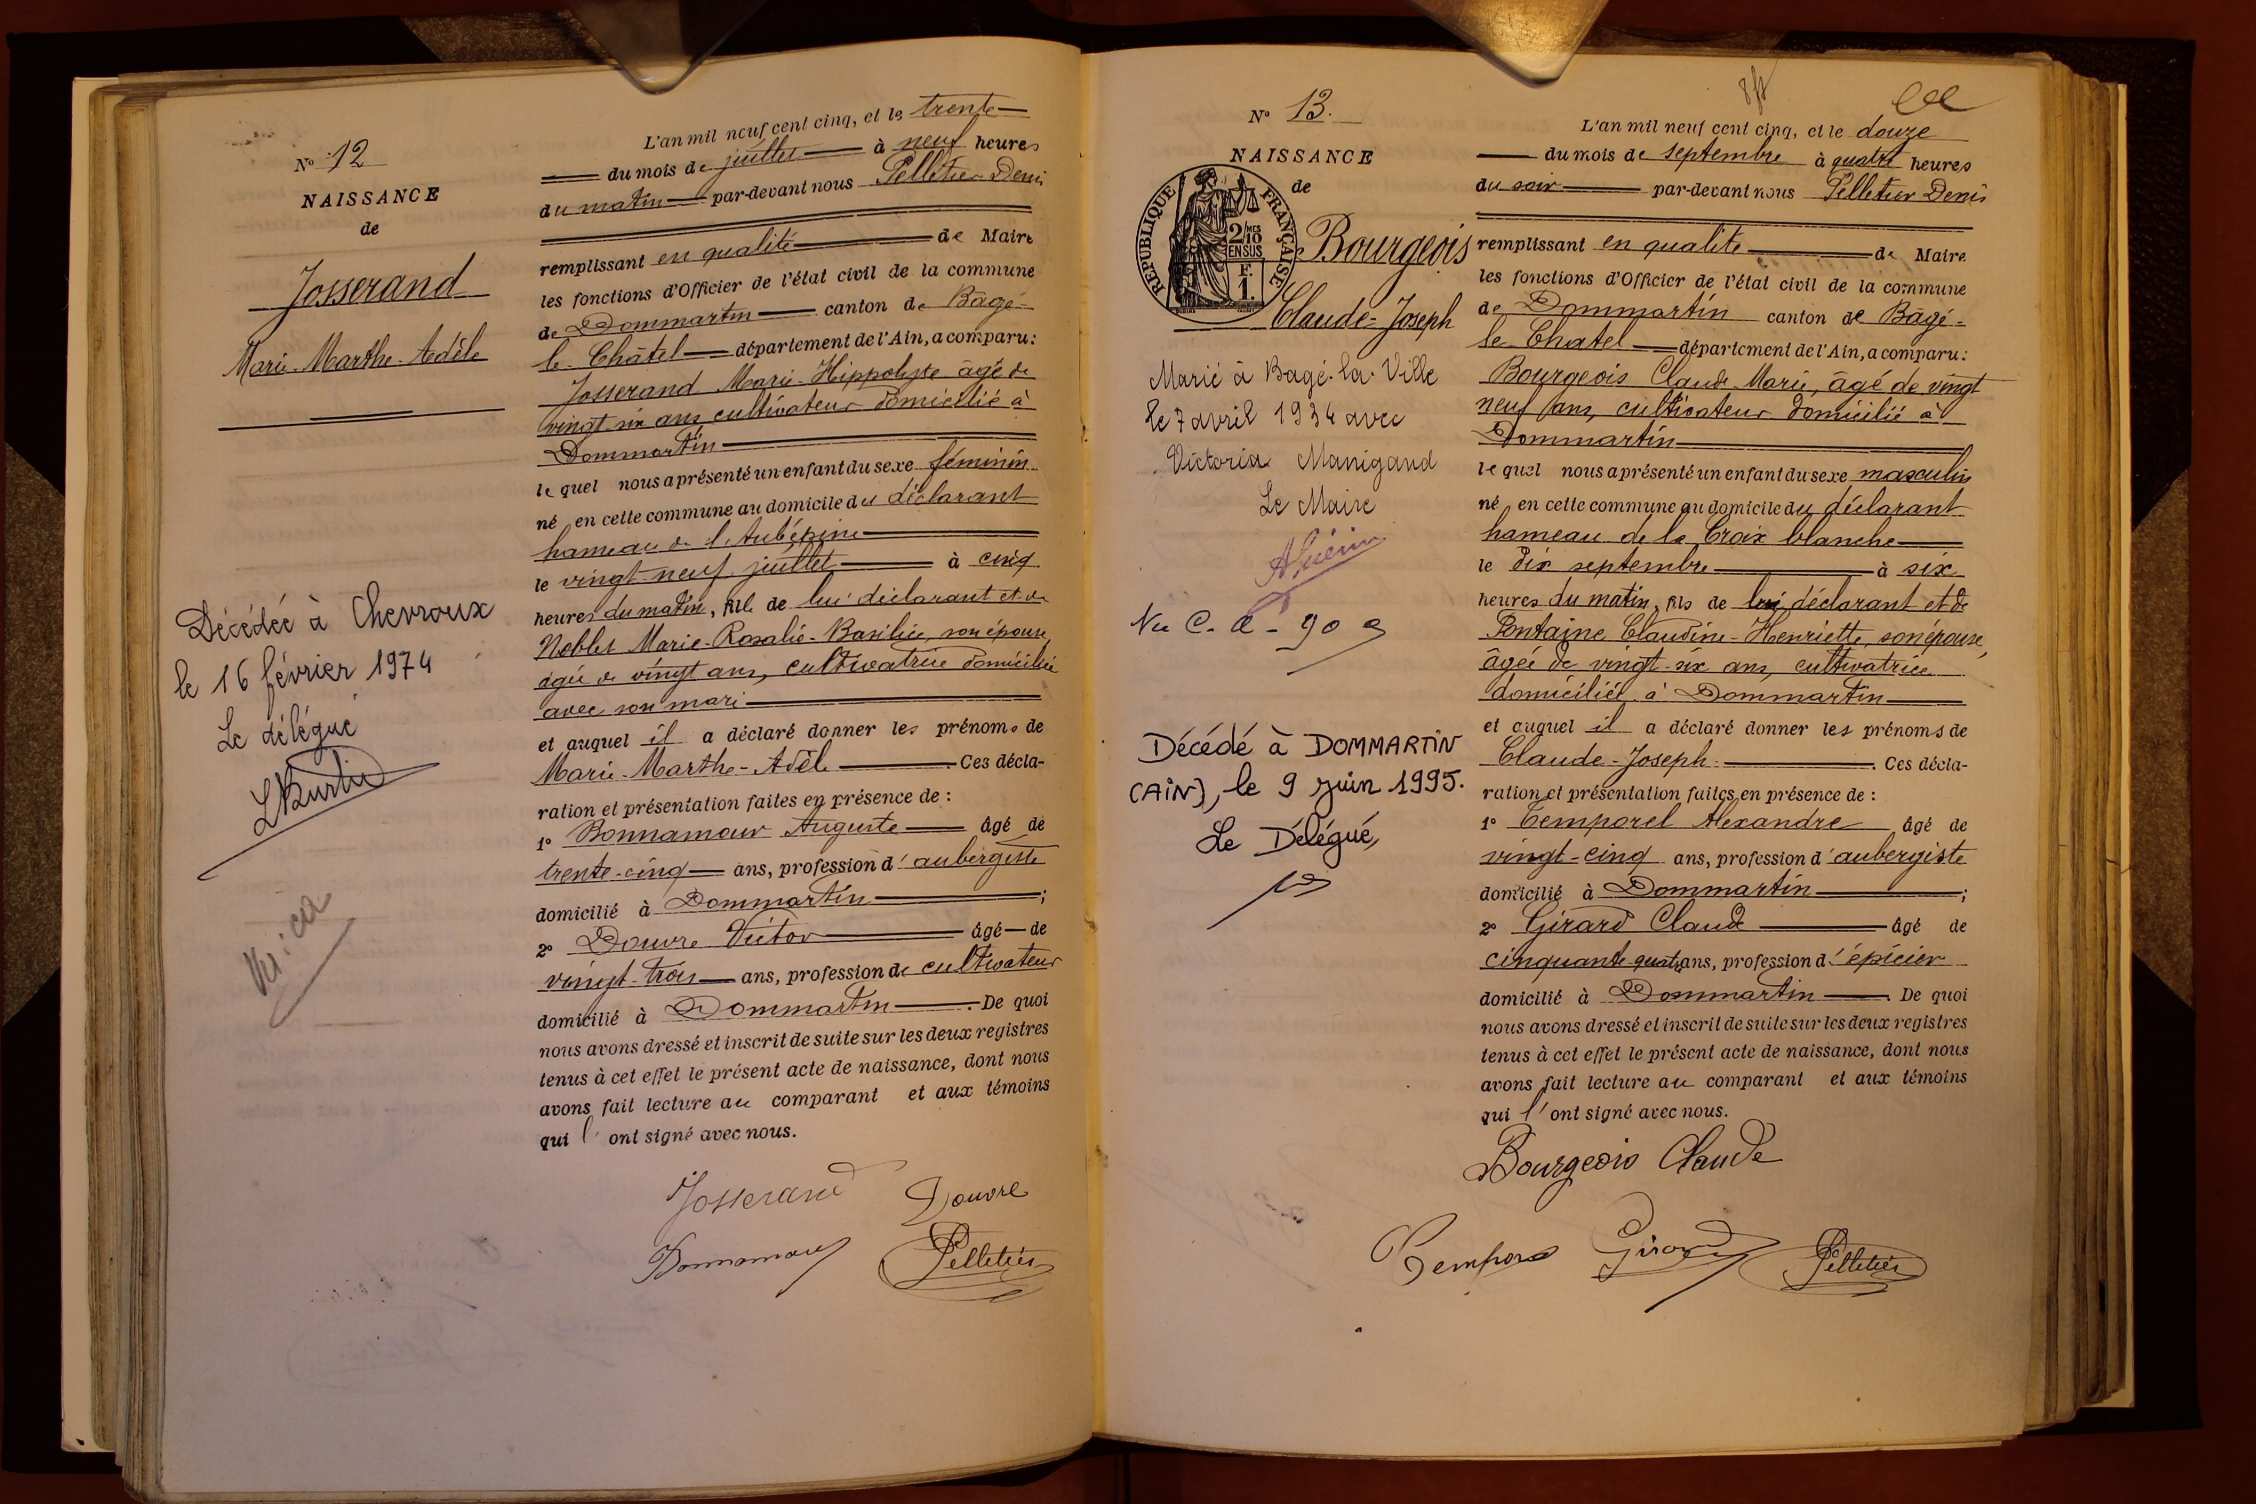 N° 12
NAISSANCE
de
Josserand
Marie-Marthe-Adèle
Décédée à Chevroux
le 16 février 1974
Le délégué
L'an mil neuf cent cinq, et le trente
du mois de juillet à neuf heures
du matin par-devant nous Pelletier Denis
remplissant en qualité de Maire
les fonctions d'Officier de l'état civil de la commune
de Dommartin canton de Bâgé-
le-Châtel département de l'Ain, a comparu:
Josserand Marie-Hippolyte âgé de
vingt-six ans cultivateur domicilié à
Dommartin
le quel nous a présenté un enfant du sexe féminin
né en cette commune au domicile du déclarant
hameau de l'Aubépine
le vingt-neuf juillet à cinq
heures du matin, fille de lui déclarant et de
Noblet Marie-Rosalie-Basilie, son épouse,
âgée de vingt ans, cultivatrice domiciliée
avec son mari
et auquel il a déclaré donner les prénoms de
Marie-Marthe-Adèle. Ces décla-
ration et présentation faites en présence de :
1° Bonnamour Auguste âgé de
trente-cinq ans, profession d'aubergiste
domicilié à Dommartin ;
2° Douvre Victor âgé de
vingt-trois ans, profession de cultivateur
domicilié à Dommartin. De quoi
nous avons dressé et inscrit de suite sur les deux registres
tenus à cet effet le présent acte de naissance, dont nous
avons fait lecture au comparant et aux témoins
qui l'ont signé avec nous.
Josserand Douvre
Bonnamour Pelletier
N° 13.
NAISSANCE
de
REPUBLIQUE FRANÇAISE
2/10 MES
EN SUS
F.
1.
Bourgeois
Claude-Joseph
Marié à Bagé-la-Ville
le 7 avril 1934 avec
Victoria Manigand
Le Maire
Décédé à DOMMARTIN
(AIN), le 9 juin 1995.
Le Délégué,
L'an mil neuf cent cinq, et le douze
du mois de septembre à quatre heures
du soir par-devant nous Pelletier Denis
remplissant en qualité de Maire
les fonctions d'Officier de l'état civil de la commune
de Dommartin canton de Bâgé-
le-Chatel département de l'Ain, a comparu:
Bourgeois Claude-Marie, âgé de vingt
neuf ans, cultivateur domicilié à
Dommartin
le quel nous a présenté un enfant du sexe masculin
né en cette commune au domicile du déclarant
hameau de la Croix blanche
le dix septembre à six
heures du matin, fils de lui déclarant et de
Fontaine Claudine-Henriette, son épouse,
âgée de vingt-six ans, cultivatrice
domiciliée à Dommartin
et auquel il a déclaré donner les prénoms de
Claude-Joseph. Ces décla-
ration et présentation faites en présence de :
1° Temporel Alexandre âgé de
vingt-cinq ans, profession d'aubergiste
domicilié à Dommartin ;
2° Girard Claude âgé de
cinquante-quatre ans, profession d'épicier
domicilié à Dommartin. De quoi
nous avons dressé et inscrit de suite sur les deux registres
tenus à cet effet le présent acte de naissance, dont nous
avons fait lecture au comparant et aux témoins
qui l'ont signé avec nous.
Bourgeois Claude
Temporel Girard Pelletier